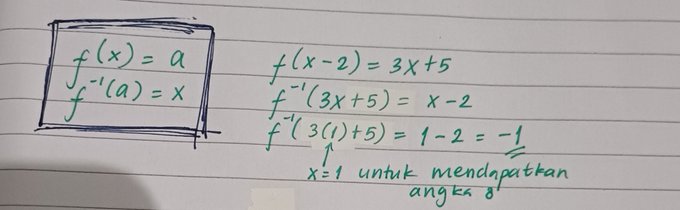 f(x) = a
f⁻¹(a) = x
f(x-2) = 3x+5
f⁻¹(3x+5) = x-2
f⁻¹(3(1)+5) = 1-2 = -1
x=1 untuk mendapatkan
angka 8